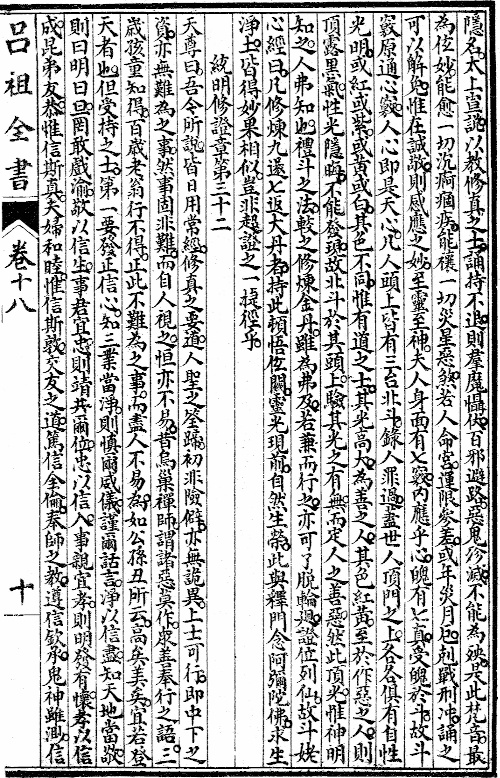 隱名太上直說以教修真之士誦持不退則羣魔懾伏百邪避路惡鬼殄滅不能為殃是此梵音最
為位妙能愈一切沉痾痼疾能禳一切災星惡煞若人命宮運限參差或年災月厄剋戰刑冲誦之
可以解免惟在誠敬則感應之妙至靈至神夫人身面有七竅内應乎心魄有七真受魄於斗故斗
竅原通心竅人心即是天心凡人頭上皆有三台北斗錄人罪過蓋世人頂門之上各各俱有自性
光明或紅或紫或黃或白其色不同惟有道之士其光高大為善之人其色紅黃至於作惡之人則
頂露黑氣性光隱晦不能發現故北斗於其頭上驗其光之有無而定人之善惡然此頂光惟神明
知之人弗知也禮斗之法較之修煉金丹雖為弗及若兼而行之亦可了脫輪廻證位列仙故斗姥
心經曰凡修煉九還七返大丹者持此頓悟位關靈光現前自然生榮此與釋門念阿彌陀佛求生
淨土皆得妙果相似豈非超證之一捷徑乎
統明修證章第三十二
天尊曰吾今所說皆日用常經修真之要道人聖之筌蹄初非險僻亦無詭異上士可行即中下之
資亦無難為之事然事固非難而自人視之恒亦不易昔鳥巢禪師謂諸惡莫作衆善奉行之語三
歲孩童知得百歲老翁行不得正此不難為之事而盡人不易為如公孫丑所云高矣美矣宜若登
天者也但受持之士第一要發正信心知三業當淨則慎爾威儀謹爾話言淨以信盡知天地當敬
則曰明曰旦罔敢戲渝敬以信生事君宜忠則靖共爾位忠以信入事親宜孝則明發有懷孝以信
成昆弟友恭惟信斯真夫婦和睦惟信斯敦交友之道篤信全倫奉師之教遵信欽承鬼神雖渺信
呂祖全書
卷十八
十